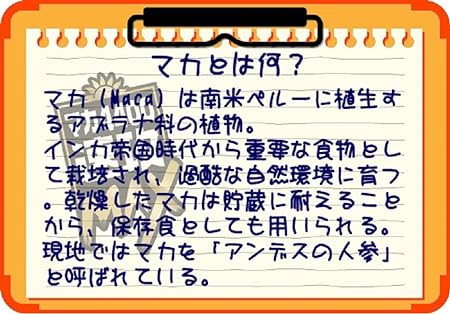 マカとは何？
マカ（Maca）は南米ペルーに植生す
るアブラナ科の植物。
インカ帝国時代から重要な食物とし
て栽培され、過酷な自然環境に育つ
。乾燥したマカは貯蔵に耐えること
から、保存食としても用いられる。
現地ではマカを「アンデスの人参」
と呼ばれている。